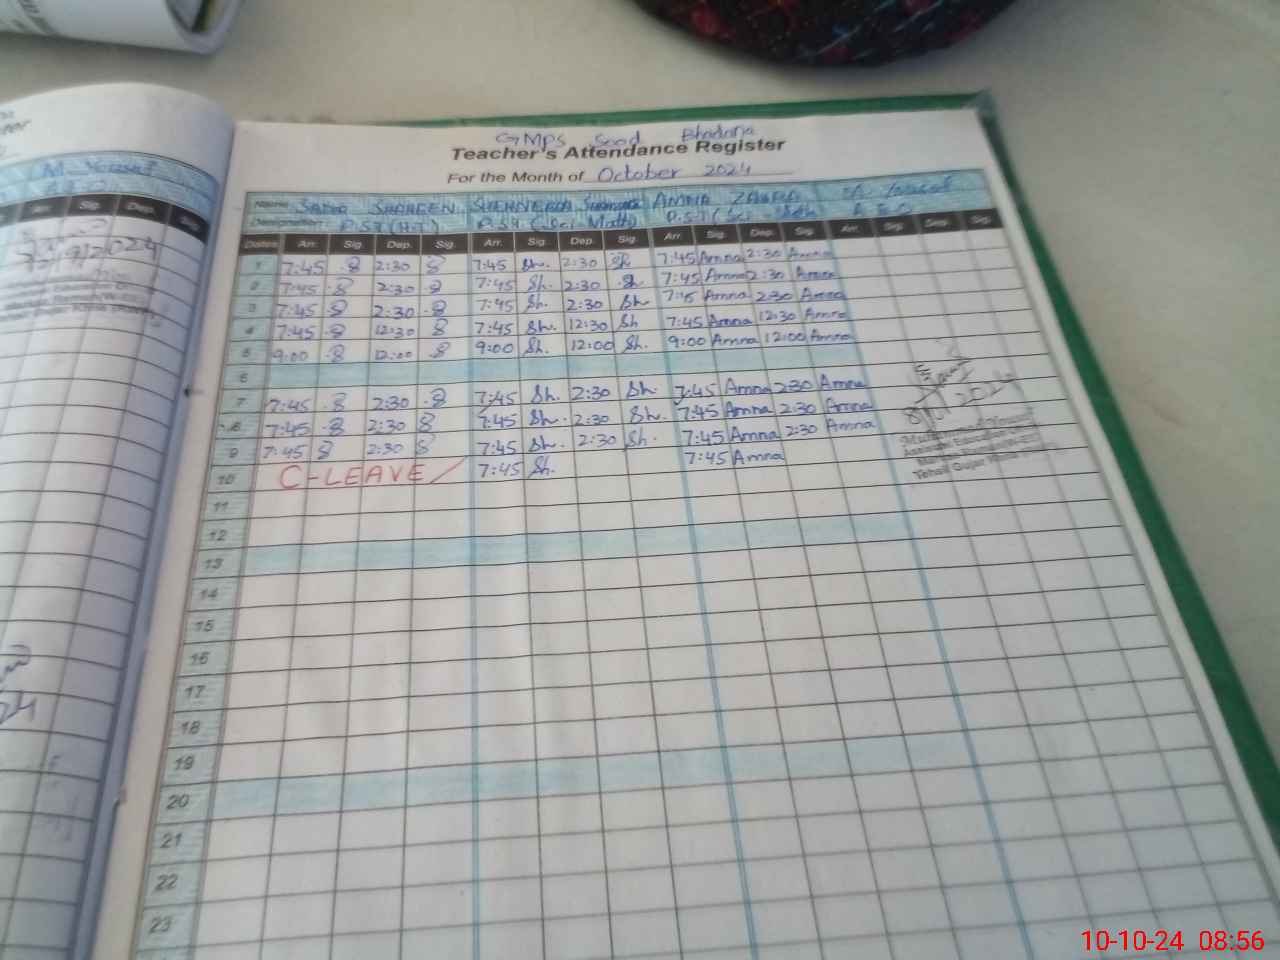 GMPS Sood Bhadana
Teacher's Attendance Register
For the Month of October 2024
Name SADIA SHAHEEN AMNA ZAHRA M. Yousaf
Designation P.ST (H.T) P.ST (Sci-Math) P.ST (Sci-Math) A.E.O
Dates Arr. Sig. Dep. Sig. Arr. Sig. Dep. Sig. Arr. Sig. Dep. Sig. Arr. Sig. Dep. Sig.
1 7:45 2:30 7:45 Sh. 2:30 Sh 7:45 Amna 2:30 Amna
2 7:45 2:30 7:45 Sh. 2:30 Sh 7:45 Amna 2:30 Amna
3 7:45 2:30 7:45 Sh. 2:30 Sh 7:45 Amna 2:30 Amna
4 7:45 12:30 7:45 Sh. 12:30 Sh 7:45 Amna 12:30 Amna
5 9:00 12:00 9:00 Sh. 12:00 Sh. 9:00 Amna 12:00 Amna
6
7 7:45 2:30 7:45 Sh. 2:30 Sh. 7:45 Amna 2:30 Amna
8 7:45 2:30 7:45 Sh. 2:30 Sh. 7:45 Amna 2:30 Amna
9 7:45 2:30 7:45 Sh. 2:30 Sh. 7:45 Amna 2:30 Amna
10 C-LEAVE 7:45 Sh. 7:45 Amna
11
12
13
14
15
16
17
18
19
20
21
22
23
M. Yousaf
Arr. Sig. Dep. Sig.
Assistant Education
Tehsil Gujar Khan
10-10-24 08:56